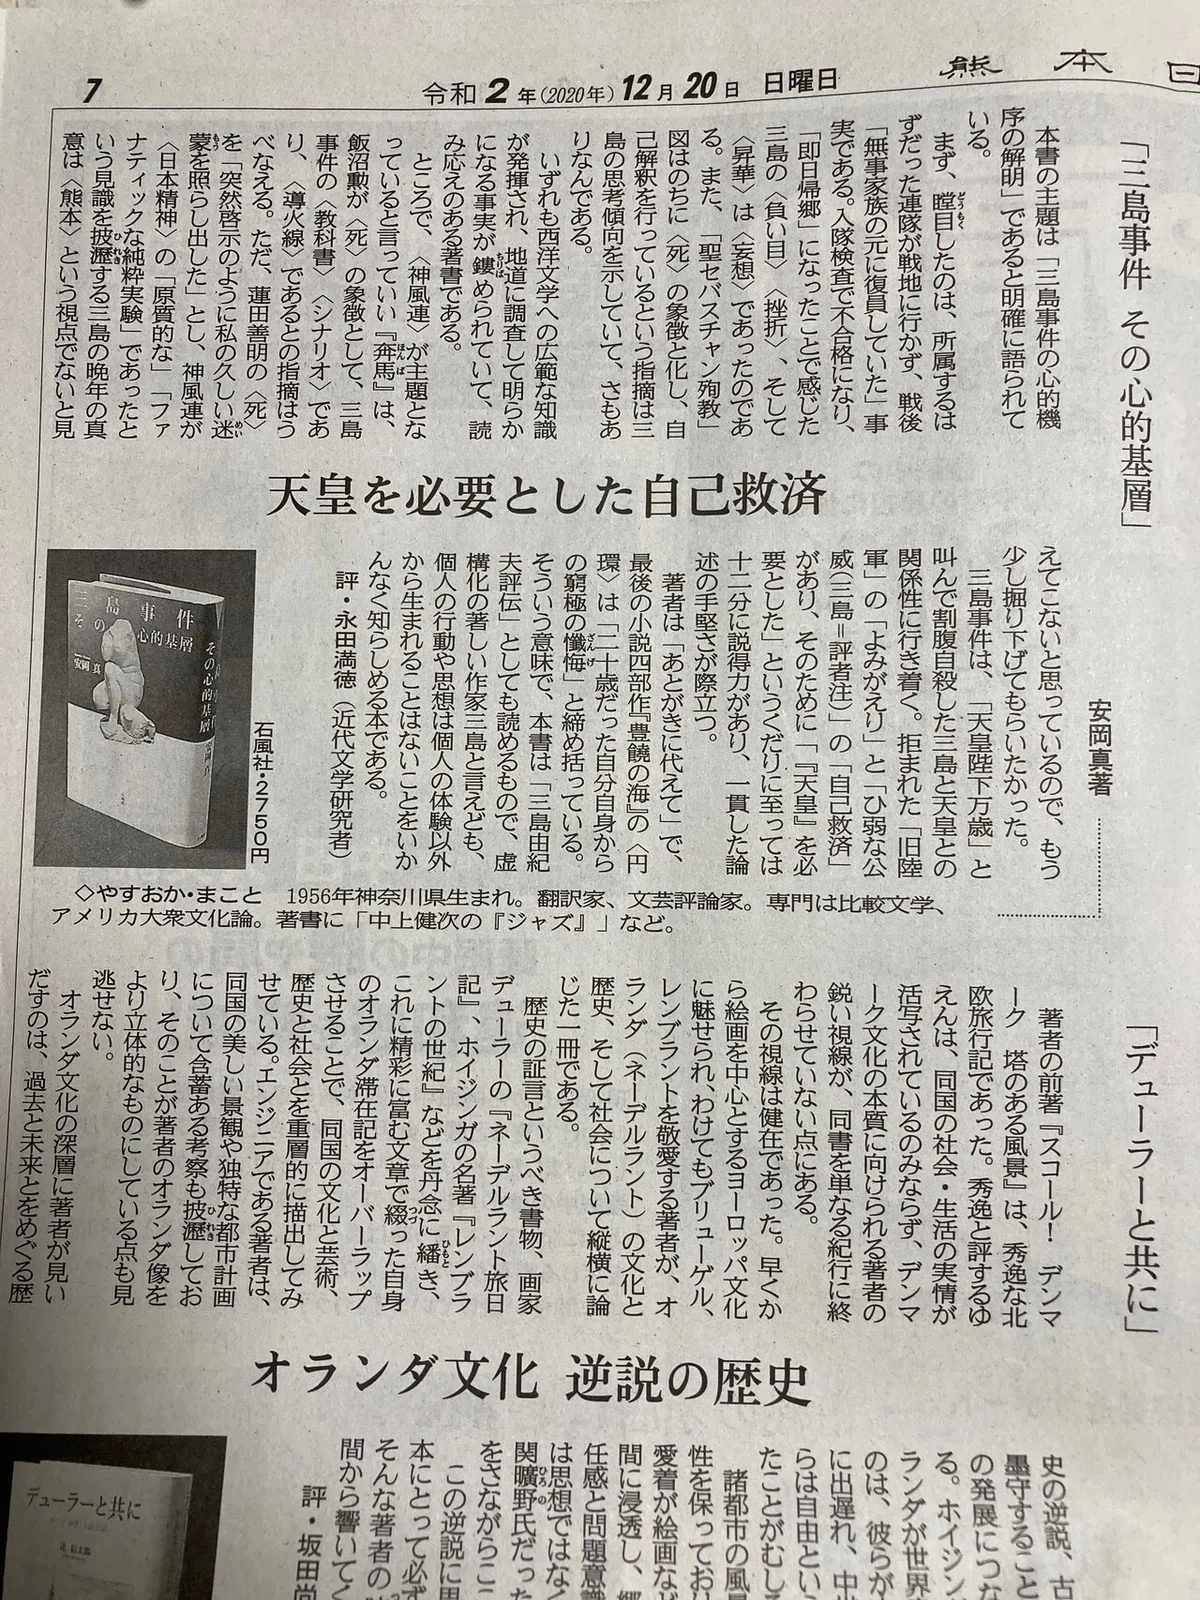 7
令和2年(2020年)12月20日 日曜日
熊本日
「三島事件 その心的基層」
安岡真著
本書の主題は「三島事件の心的機
序の解明」であると明確に語られて
いる。
まず、瞠目したのは、所属するは
ずだった連隊が戦地に行かず、戦後
「無事家族の元に復員していた」事
実である。入隊検査で不合格になり、
「即日帰郷」になったことで感じた
三島の〈負い目〉〈挫折〉、そして
〈昇華〉は〈妄想〉であったのであ
る。また、「聖セバスチャン殉教」
図はのちに〈死〉の象徴と化し、自
己解釈を行っているという指摘は三
島の思考傾向を示していて、さもあ
りなんである。
いずれも西洋文学への広範な知識
が発揮され、地道に調査して明らか
になる事実が鏤められていて、読
み応えのある著書である。
ところで、〈神風連〉が主題とな
っていると言っていい『奔馬』は、
飯沼勲が〈死〉の象徴として、三島
事件の〈教科書〉〈シナリオ〉であ
り、〈導火線〉であるとの指摘はう
べなえる。ただ、蓮田善明の〈死〉
を「突然啓示のように私の久しい迷
蒙を照らし出した」とし、神風連が
〈日本精神〉の「原質的な」「ファ
ナティックな純粋実験」であったと
いう見識を披瀝する三島の晩年の真
意は〈熊本〉という視点でないと見
天皇を必要とした自己救済
えてこないと思っているので、もう
少し掘り下げてもらいたかった。
三島事件は、「天皇陛下万歳」と
叫んで割腹自殺した三島と天皇との
関係性に行き着く。拒まれた「旧陸
軍」の「よみがえり」と「ひ弱な公
威(三島=評者注)」の「自己救済」
があり、そのために「『天皇』を必
要とした」というくだりに至っては
十二分に説得力があり、一貫した論
述の手堅さが際立つ。
著者は「あとがきに代えて」で、
最後の小説四部作『豊饒の海』の〈円
環〉は「二十歳だった自分自身から
の窮極の懺悔」と締め括っている。
そういう意味で、本書は「三島由紀
夫評伝」としても読めるもので、虚
構化の著しい作家三島と言えども、
個人の行動や思想は個人の体験以外
から生まれることはないことをいか
んなく知らしめる本である。
評・永田満徳(近代文学研究者)
三島事件
その心的基層
安岡真
その心的基層
石風社・2750円
◇やすおか・まこと 1956年神奈川県生まれ。翻訳家、文芸評論家。専門は比較文学、
アメリカ大衆文化論。著書に「中上健次の『ジャズ』」など。
「デューラーと共に」
著者の前著『スコール! デンマ
ーク 塔のある風景』は、秀逸な北
欧旅行記であった。秀逸と評するゆ
えんは、同国の社会・生活の実情が
活写されているのみならず、デンマ
ーク文化の本質に向けられる著者の
鋭い視線が、同書を単なる紀行に終
わらせていない点にある。
その視線は健在であった。早くか
ら絵画を中心とするヨーロッパ文化
に魅せられ、わけてもブリューゲル、
レンブラントを敬愛する著者が、オ
ランダ(ネーデルラント)の文化と
歴史、そして社会について縦横に論
じた一冊である。
歴史の証言というべき書物、画家
デューラーの『ネーデルラント旅日
記』、ホイジンガの名著『レンブラ
ントの世紀』などを丹念に繙き、
これに精彩に富む文章で綴った自身
のオランダ滞在記をオーバーラップ
させることで、同国の文化と芸術、
歴史と社会とを重層的に描出してみ
せている。エンジニアである著者は、
同国の美しい景観や独特な都市計画
について含蓄ある考察も披瀝してお
り、そのことが著者のオランダ像を
より立体的なものにしている点も見
逃せない。
オランダ文化の深層に著者が見い
だすのは、過去と未来とをめぐる歴
オランダ文化 逆説の歴史
史の逆説、古
墨守すること
の発展につな
る。ホイジン
ランダが世界
のは、彼らが
に出遅れ、中
らは自由とい
たことがむしろ
諸都市の風景
性を保っており
愛着が絵画など
間に浸透し、郷
任感と問題意識
は思想ではなく
関曠野氏だった
をさながらここ
この逆説に思
本にとって必ず
そんな著者の
間から響いてく
評・坂田尚
デューラーと共に